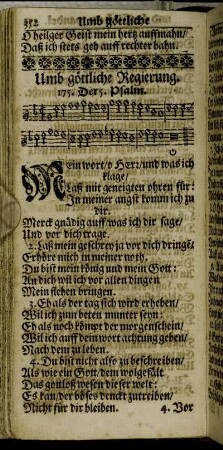 252 Umb göttliche
O heilger Geist mein hertz auffmahn/
Daß ich stets geh auff rechter bahn.
Umb göttliche Regierung.
175. Der 5. Psalm.
Mein wort/o HErr/und was ich
klage/
Laß mit geneigten ohren für:
In meiner angst komm ich zu
dir.
Merck gnädig auff/was ich dir sage/
Und vor dich trage.
2. Laß mein geschrey ja vor dich dringē/
Erhöre mich in meiner noth,
Du bist mein könig und mein Gott:
An dich wil ich vor allen dingen
Mein flehen bringen.
3. Eh als der tag sich wird erheben/
Wil ich zum beten munter seyn:
Eh als noch kömpt der morgenschein/
Wil ich auff dein wort achtung geben/
Nach dem zu leben.
4. Du bist nicht also zu beschreiben/
Als wie ein Gott, dem wolgefält
Das gottloß wesen dieser welt:
Es kan/der böses denckt zutreiben/
Nicht für dir bleiben. 4. Vor